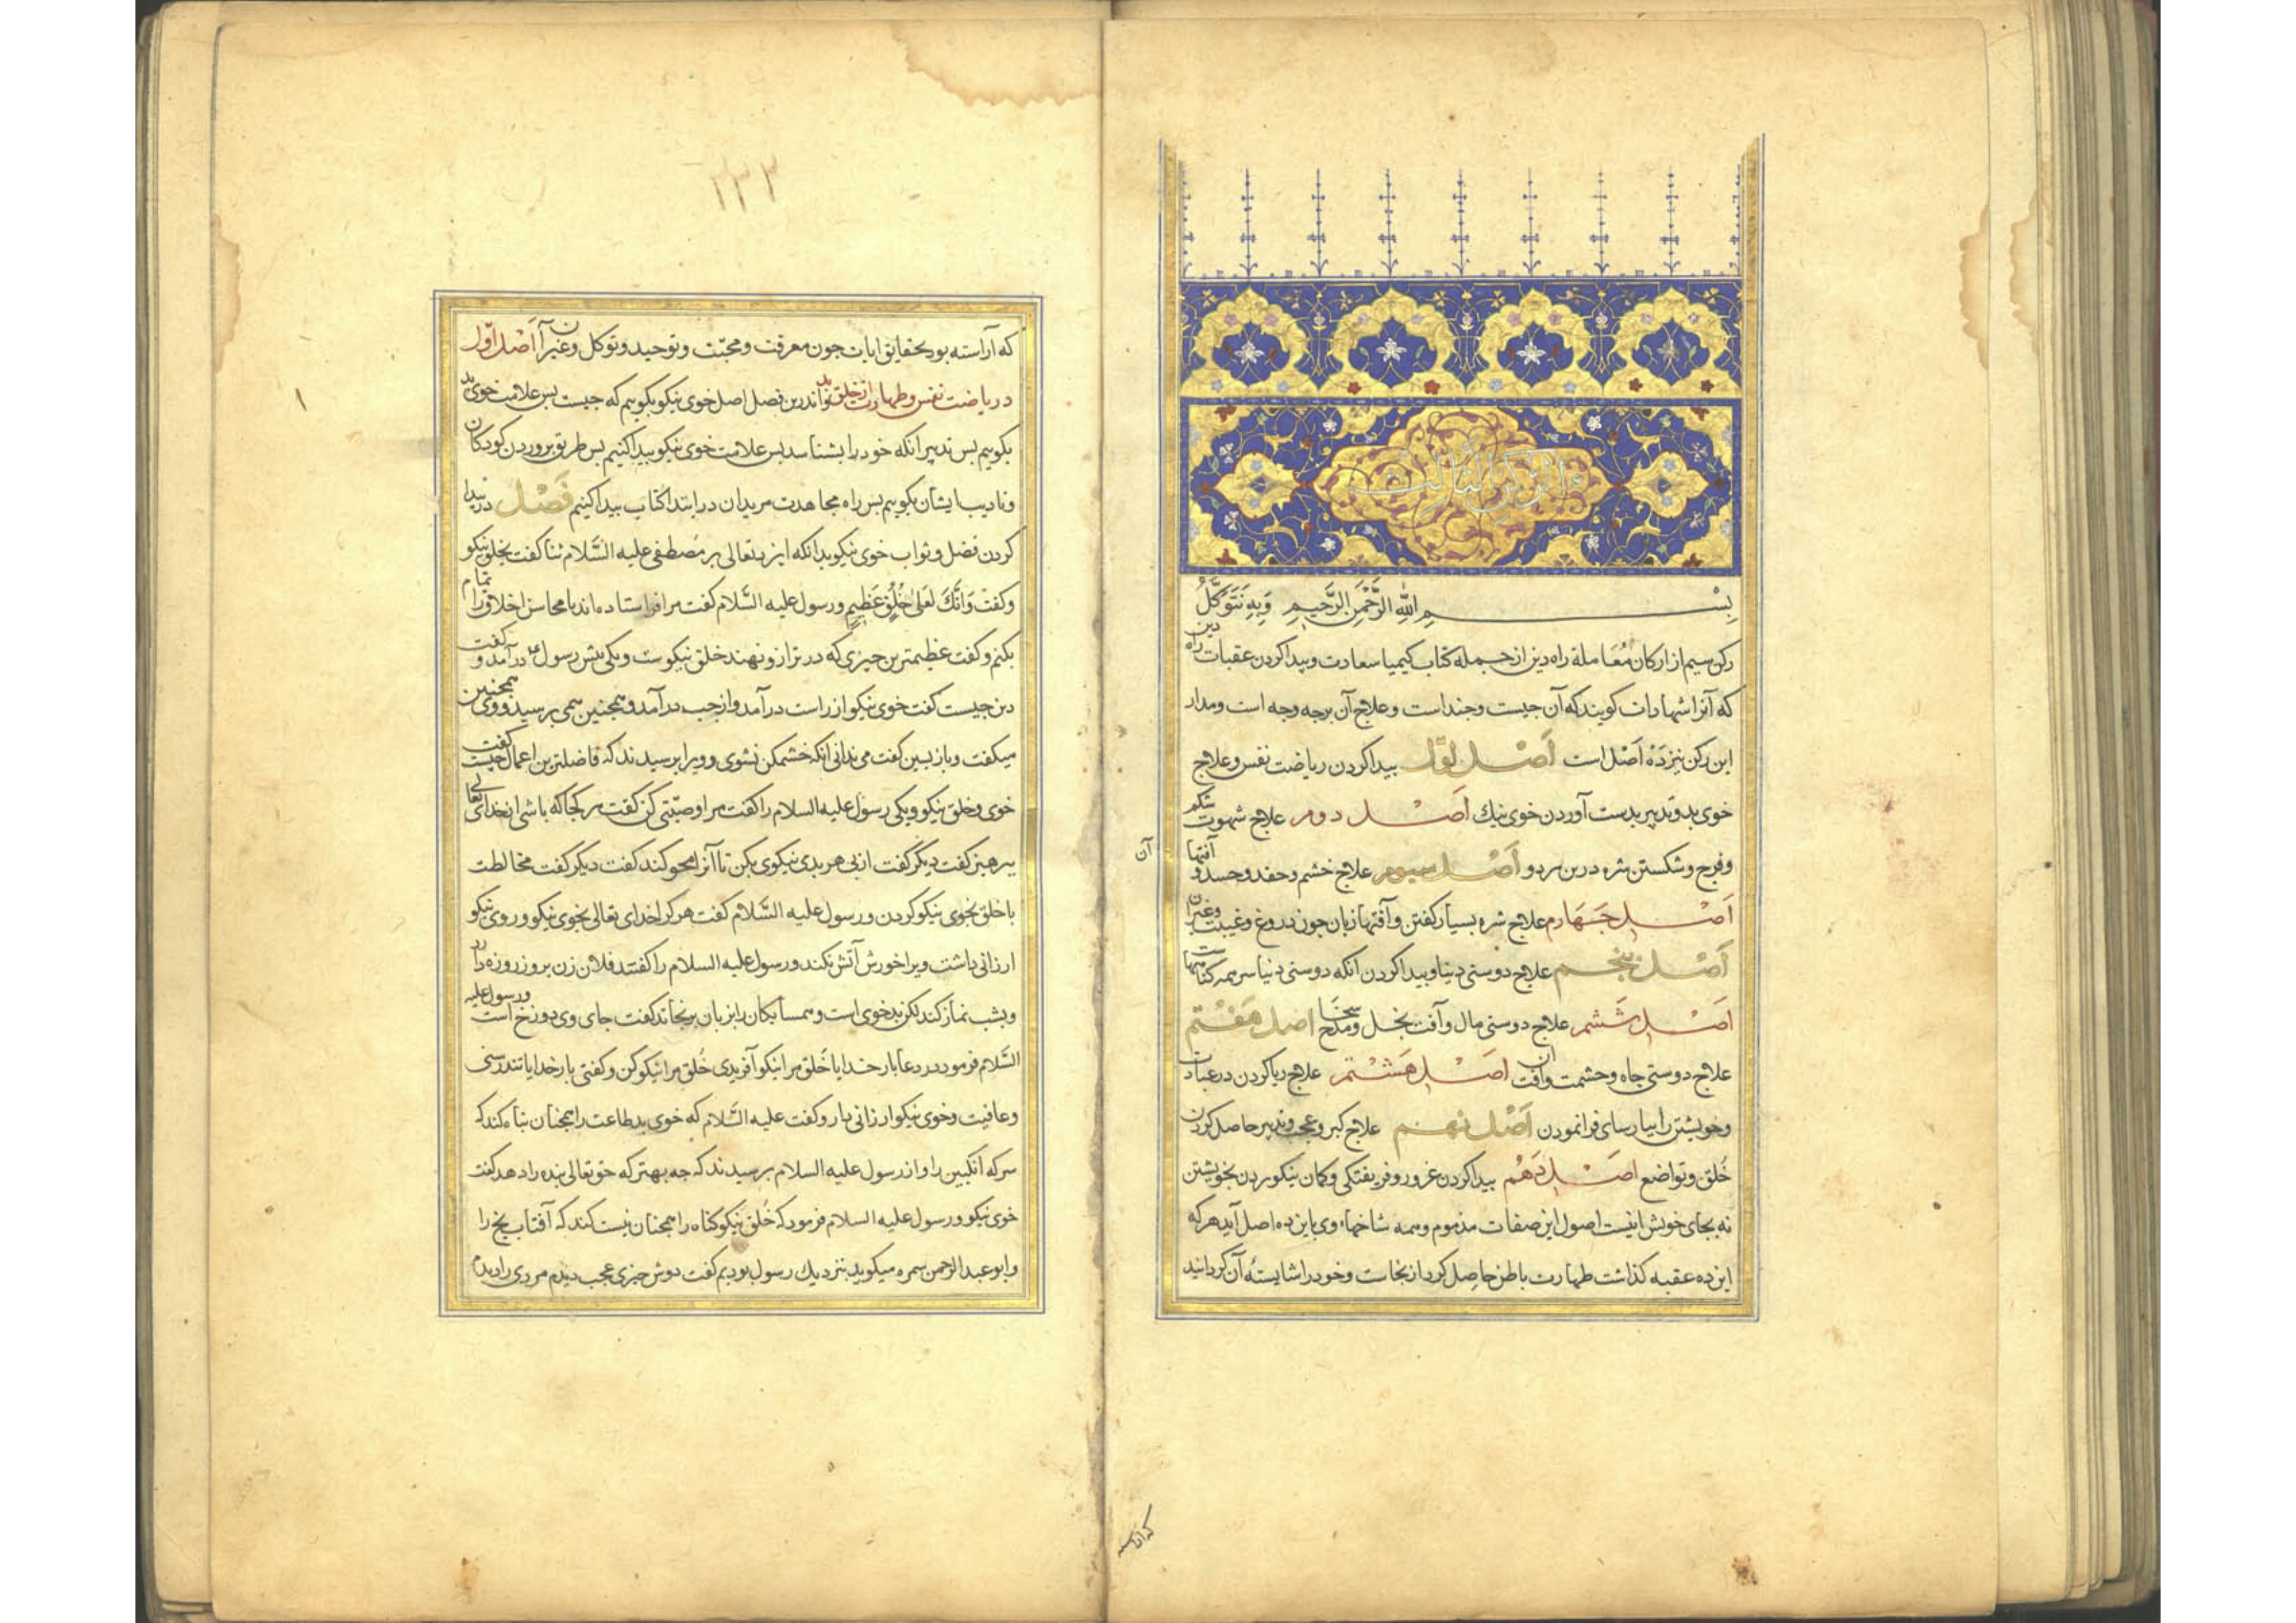 الركن الثالث
بسم الله الرَّحْمنِ الرَّحيمِ وَبِهِ نَتَوَكَّلُ
ركن سيم از اركان مُعَاملة راه دين از جمله كتاب كيميا سعادت وپيدا كردن عقبات راه دين
كه آنرا شهادات كويند كه آن جيست وجنداست وعلاج آن برجه وجه است ومدار
اين ركن نيز دَه اَصْل است اَصْل اوّل پيدا كردن رياضت نفس وعلاج
خوى بد وتدبير بدست آوردن خوى نيك اَصْل دوم علاج شهوت شكم
وفرج وشكستن شره درين هر دو اَصْل سيوم علاج خشم وحقد وحسد و آفتها
آن
اَصْل جَهَارم علاج شره بسيار كفتن وآفتها زبان جون دروغ وغيبت وغيرآن
اَصْل پنجم علاج دوستى دنيا وپيدا كردن آنكه دوستى دنيا سر همه كناهها ست
اَصْل شَشم علاج دوستى مال وآفت بخل ومدح سخا اصل هَفْتم
علاج دوستى جاه وحشمت وآفت آن اصْل هَشْتم علاج ريا كردن در عبادت
وخويشتن را بپارسايى فرا نمودن اَصْل نهم علاج كبر وعجب وتدبير حاصل كردن
خُلق وتواضع اصْل دَهُم پيدا كردن غرور وفريفتكى وكمان نيكو بردن بخويشتن
نه بجاى خويش اينست اصول اين صفات مذموم وهمه شاخهاء وى با اين ده اصل آيد هر كه
اين ده عقبه كذاشت طهارت باطن حاصل كرد از نجاست وخود را شايستهٔ آن كردانيد
كه آراسته
١٣٣
كه آراسته بود بحقايق ايمان جون معرفت ومحبّت وتوحيد وتوكل وغيرآن اَصْل اوّل
در رياضت نفس وطهارت از خلق بد واندرين فصل اصل خوى نيكو بكويم كه جيست پس علامت خوى بد
بكويم پس تدبير آنكه خود را بشناسد پس علامت خوى نيكو پيدا كنيم پس طريق پروردن كودكان
وتاديب ايشان بكويم پس راه مجاهدت مريدان در ابتدا كتاب پيدا كنيم فَصْل در پيدا
كردن فضل وثواب خوى نيكو بدانكه ايزد تعالى بر مُصطفى عليه السَّلام ثنا كفت بخلق نيكو
وكفت وَانَّكَ لَعَلى خُلُقٍ عَظِيمٍ ورسول عليه السَّلام كفت مرا فرستاده اند تا محاسن اخلاق را تمام
بكنم وكفت عظيمترين چيزى كه در ترازو نهند خلق نيكوست ويكى پيش رسول عم درآمد و كفت
دين جيست كفت خوى نيكو از راست درآمد واز چپ درآمد وهمجنين همى پرسيد ووى همجنين
ميكفت وباز پسين كفت مى ندانى آنكه خشمكن نشوى وويرا پرسيدند كه فاضلترين اعمال جيست كفت
خوى وخلق نيكو ويكى رسول عليه السلام را كفت مرا وصيّتى كن كفت هر كجا كه باشى از خداى تعالى
پرهيز كفت ديكر كفت از پى هر بدى نيكوى بكن تا آنرا محو كند كفت ديكر كفت مخالطت
با خلق بخوى نيكو كردن ورسول عليه السَّلام كفت هر كرا خداى تعالى بخوى نيكو وروى نيكو
ارزانى داشت ويرا خورش آتش نكند ورسول عليه السلام را كفتند فلان زن بروز روزه دارد
وبشب نماز كند لكن بدخوى است وهمسايكان را بزبان برنجاند كفت جاى وى دوزخ است ورسول عليه
السَّلام فرمود در دعا بار خدايا خَلق مرا نيكو آفريدى خُلق مرا نيكو كن وكفتى بار خدايا تندرستى
وعافيت وخوى نيكو ارزانى دار وكفت عليه السَّلام كه خوى بد طاعت را همجنان تباه كند كه
سركه انكبين را واز رسول عليه السلام پرسيدند كه چه بهتر كه حق تعالى بنده را دهد كفت
خوى نيكو ورسول عليه السلام فرمود كه خُلق نيكو كناه را همجنان نيست كند كه آفتاب يخ را
وابو عبد الرحمن سمره ميكويد بنزديك رسول بوديم كفت دوش چيزى عجب ديدم مردى را ديدم